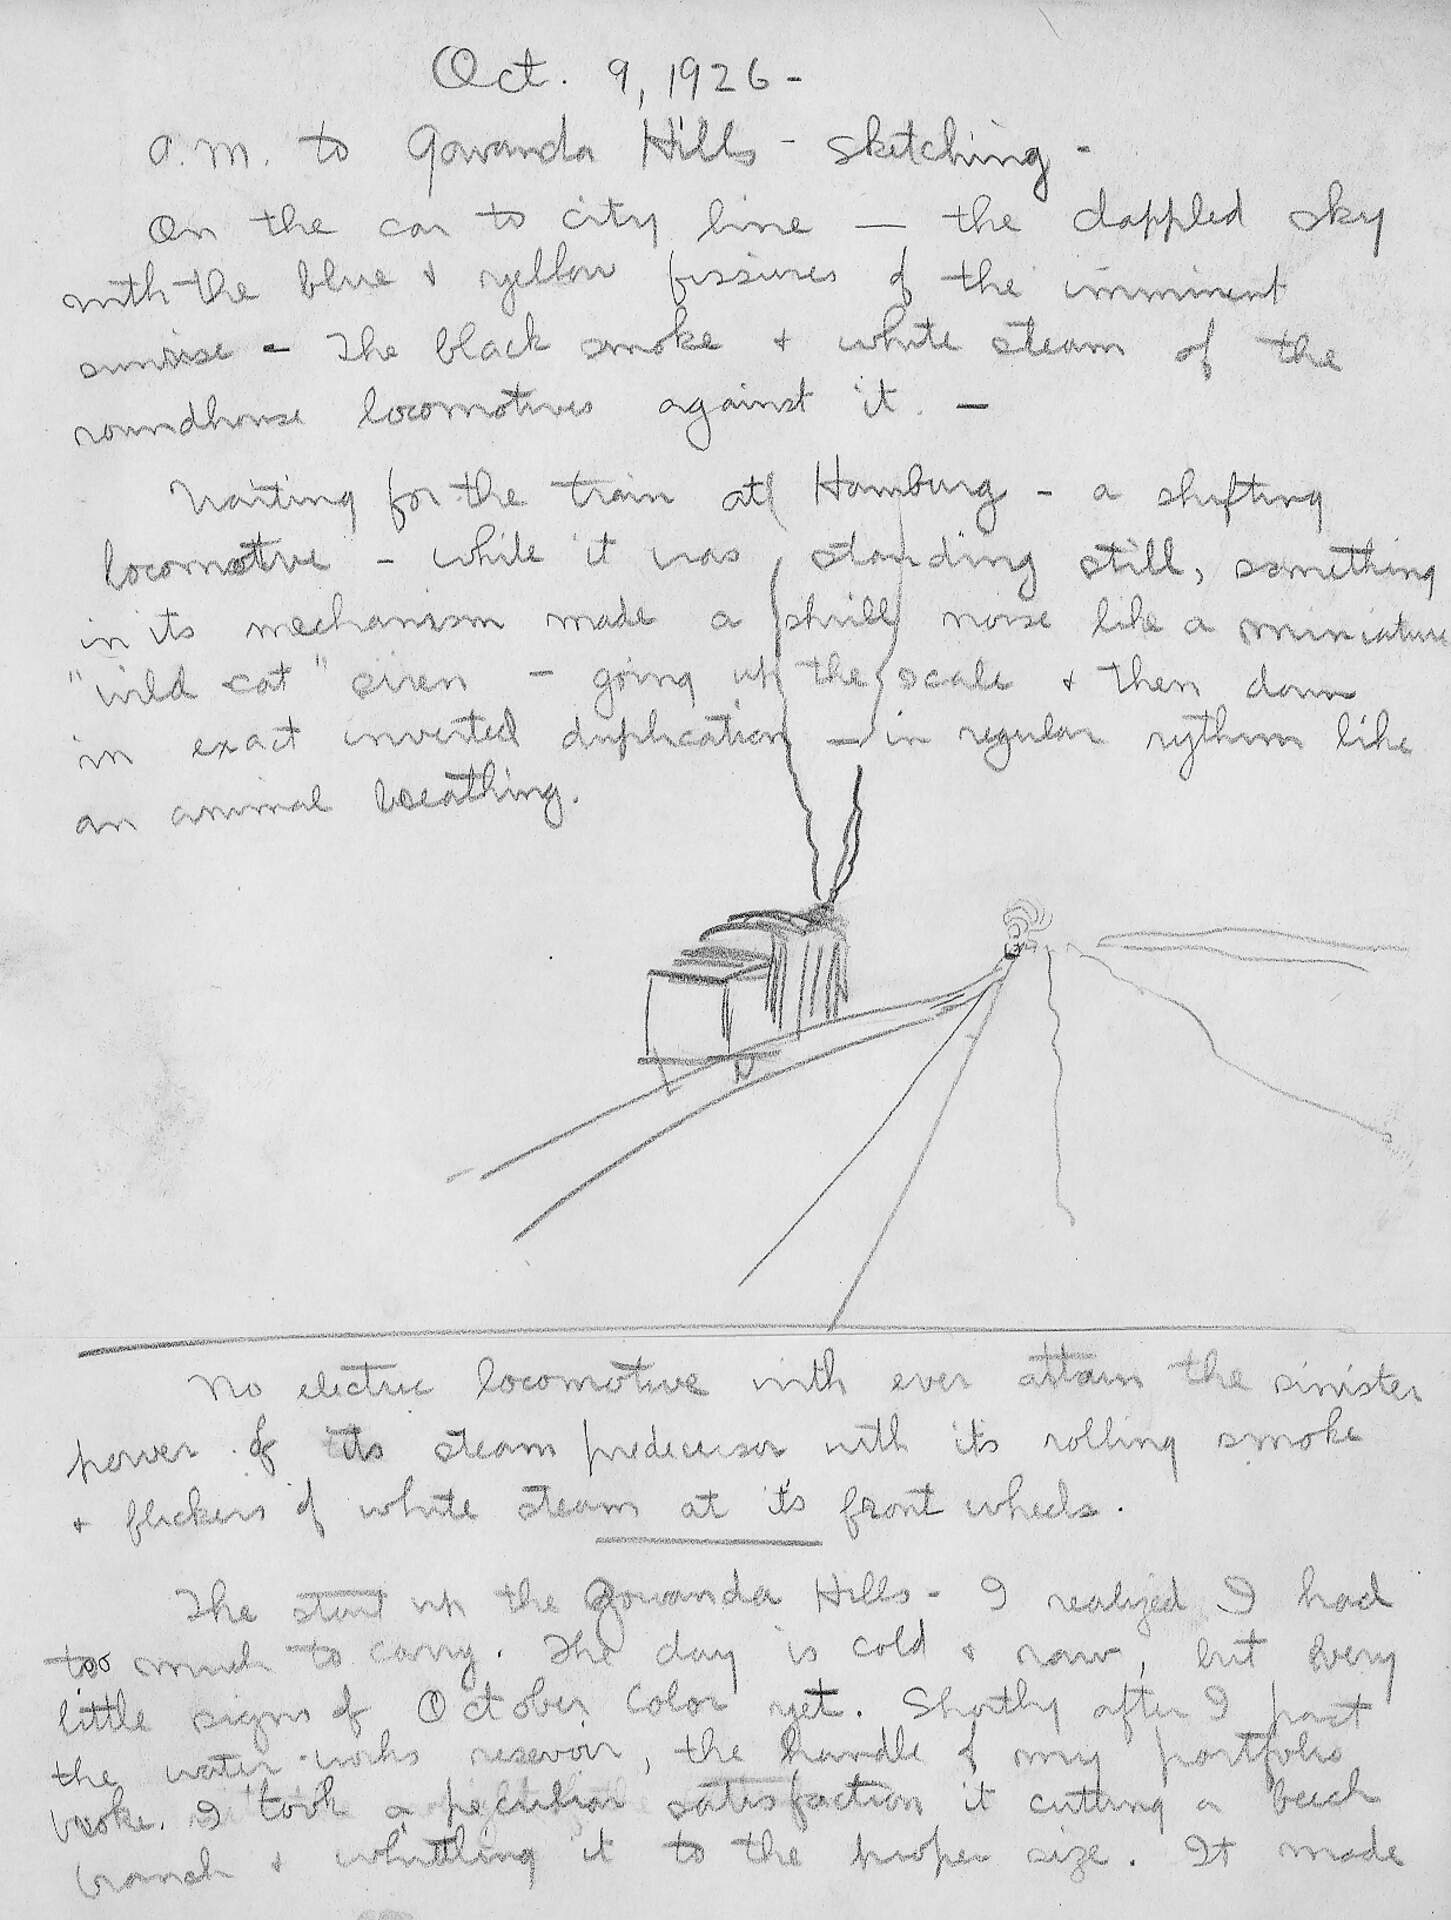 Oct. 9, 1926 -
A.M. to Gowanda Hills - sketching -
On the car to city line — the dappled sky
with the blue & yellow fissures of the imminent
sunrise - The black smoke & white steam of the
roundhouse locomotives against it. —
Waiting for the train at Hamburg - a shifting
locomotive - while it was standing still, something
in its mechanism made a shrill noise like a miniature
"wild cat" siren - going up the scale & then down
in exact inverted duplication — in regular rythum like
an animal breathing.
No electric locomotive with ever attain the sinister
power of its steam predecessor with its rolling smoke
& flickers of white steam at its front wheels.
The start up the Gowanda Hills - I realized I had
too much to carry. The day is cold & raw, but very
little signs of October color yet. Shortly after I past
the water-works resevoir, the handle of my portfolio
broke. I took a peculiar satisfaction it cutting a beech
branch & whittling it to the proper size. It made